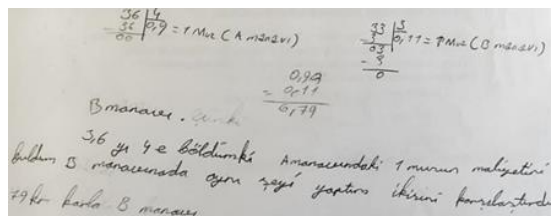 36 | 4
- 36 | 0,9 = 1 Muz (A manavı)
00
33 | 3
- 3 | 0,11 = 1 Muz (B manavı)
03
- 3
0
0,90
- 0,11
0,79
B manavı. çünki
3,6 yı 4 e böldümki A manavındaki 1 muzun maliyetini
buldum B manavınada aynı şeyi yaptım ikisini karşılaştırdı
79 kr karla B manavı